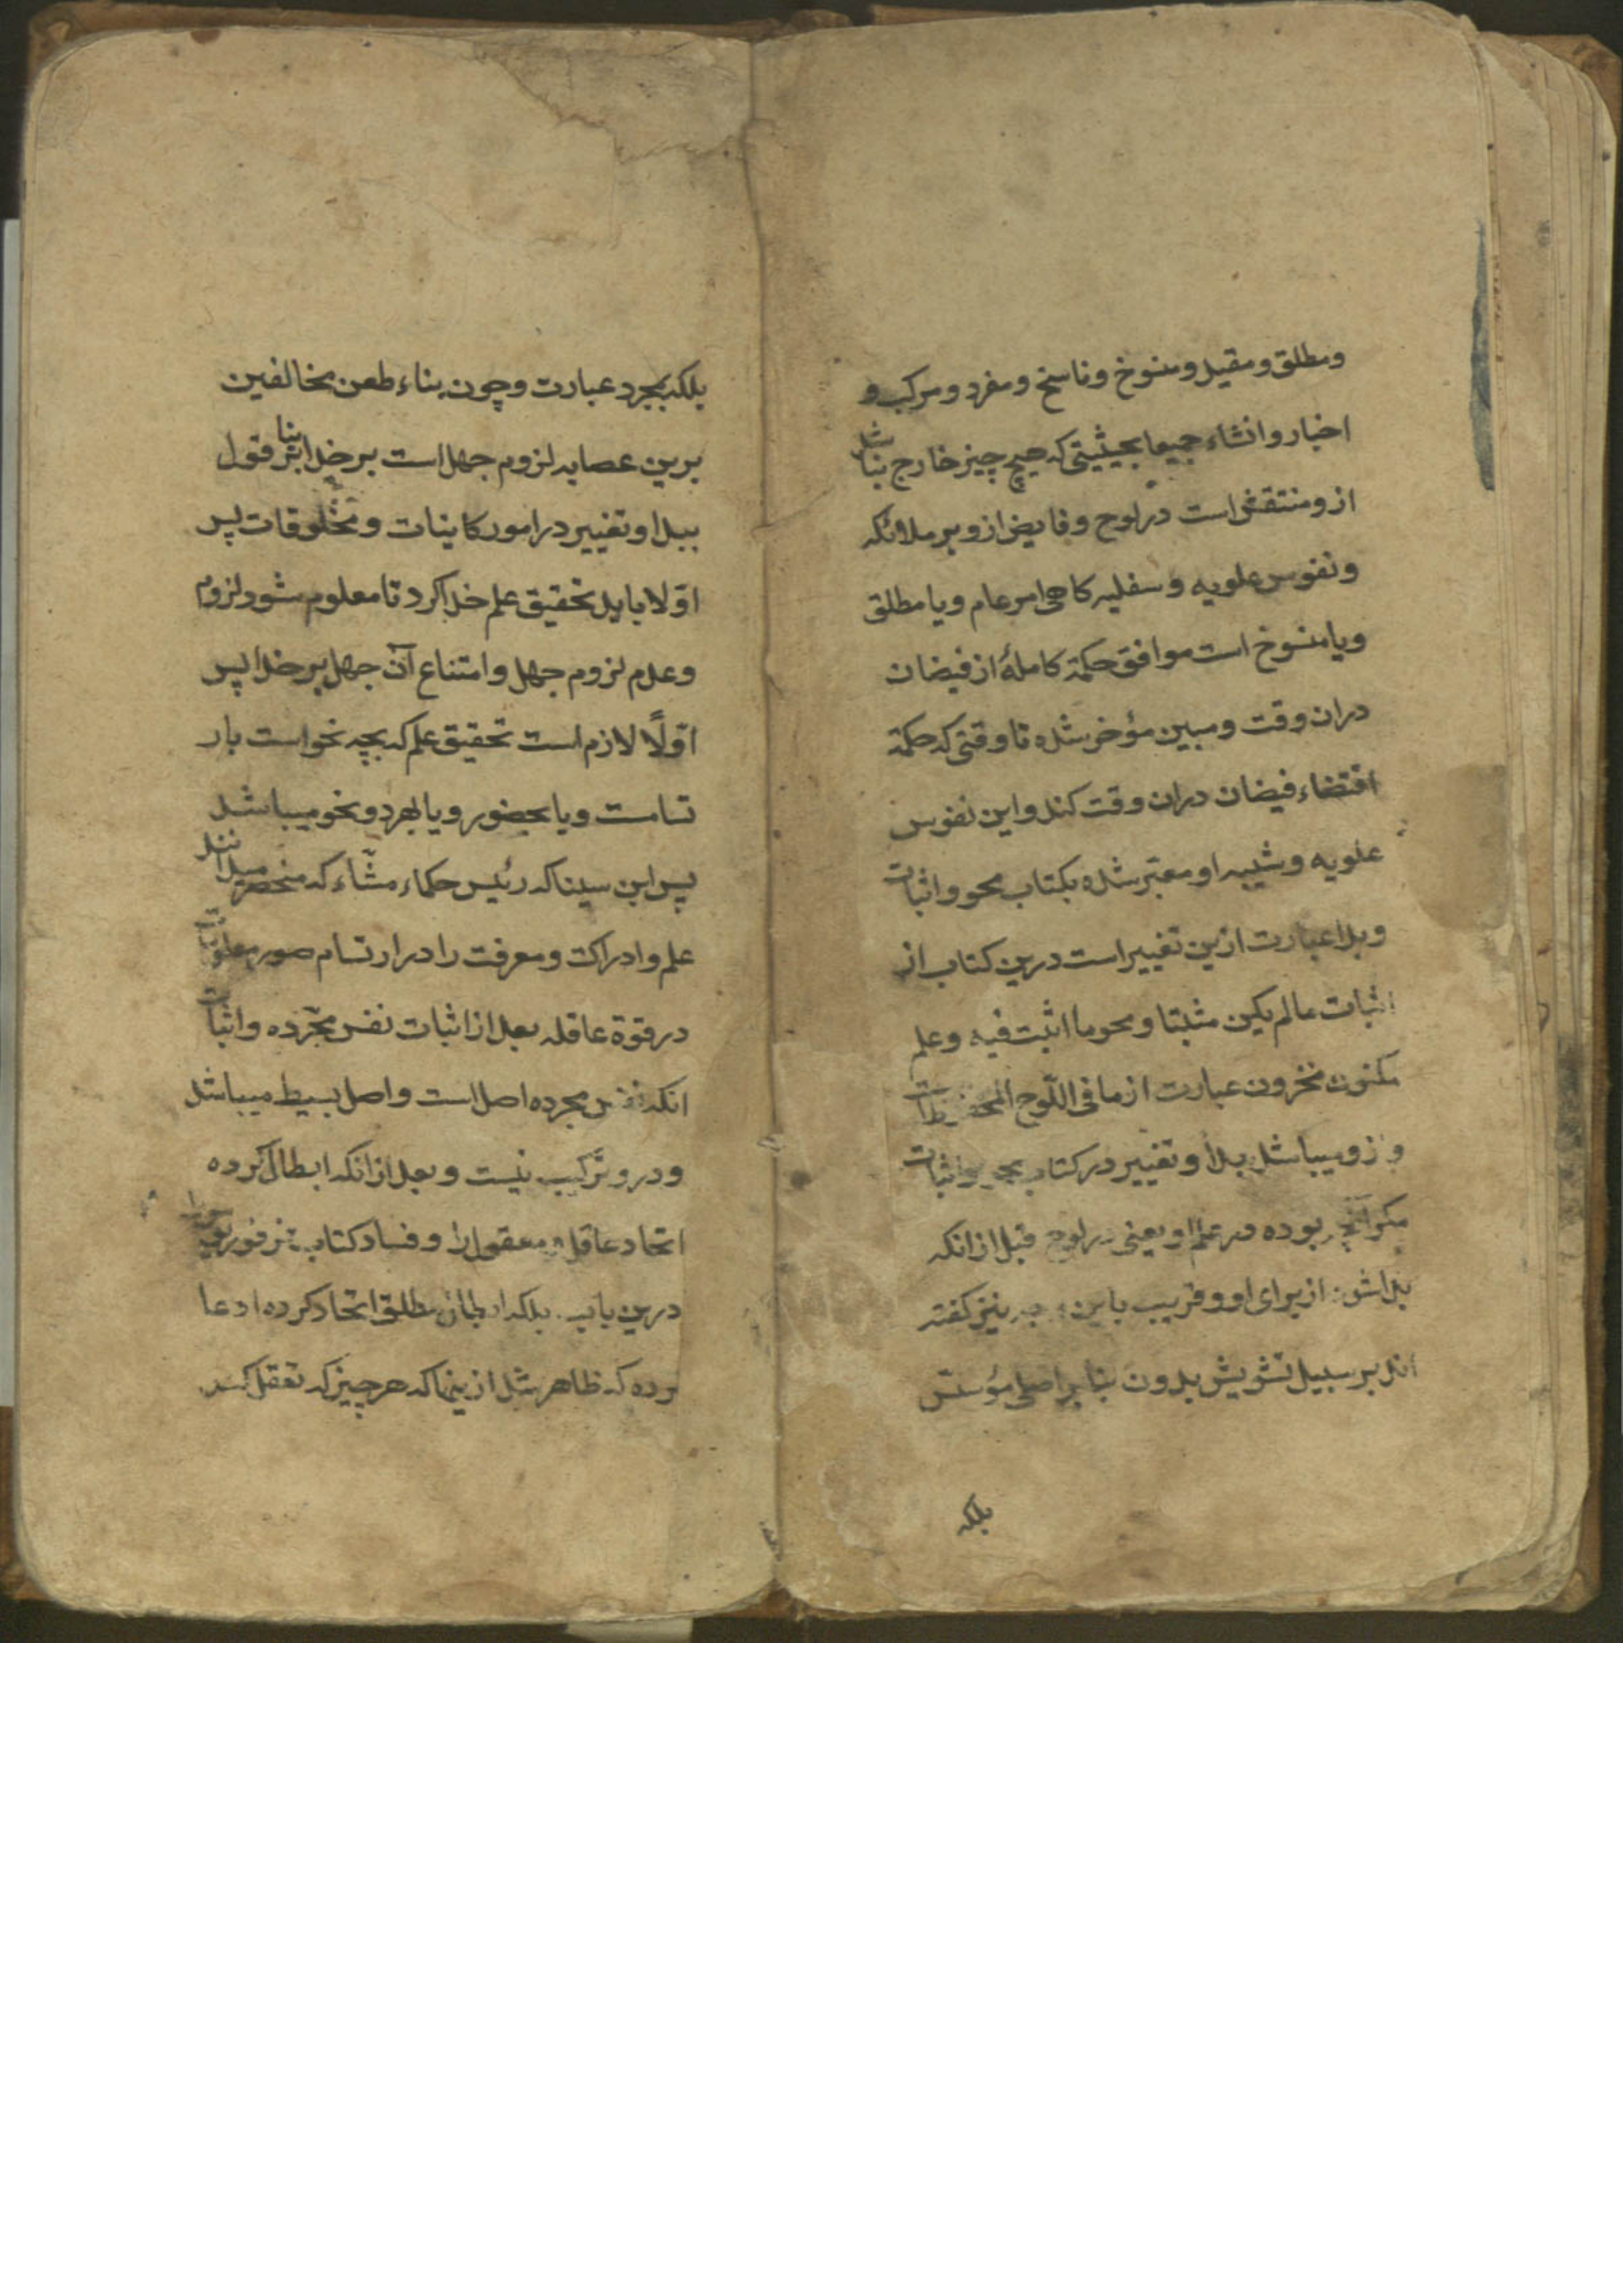 ومطلق ومقید ومنسوخ وناسخ ومفرد ومرکب و
اخبار وانشاء جمیعا بحیثیتی که هیچ چیز خارج نباشد
ازو منتقش است در لوح وفایض ازو بر ملائکه
ونفوس علویه وسفلیه کاهی امر عام ویا مطلق
ویا منسوخ است موافق حکمة کاملهٔ از فیضان
دران وقت ومبین مؤخر شده تا وقتی که حکمة
اقتضاء فیضان دران وقت کند واین نفوس
علویه وشبیه او معتبر شده بکتاب محو واثبات
وبدا عبارت ازین تغییر است درین کتاب از
اثبات مالم یکن مثبتا ومحو ما اثبت فیه وعلم
مکنون مخزون عبارت از ما فی اللّوح المحفوظ است
وازو میباشد بدا وتغییر در کتاب محو واثبات
مکر آنچه بوده در علم او یعنی در لوح قبل از انکه
بدا شود از برای او وقریب باین نیز کفته
اند بر سبیل تشویش بدون بنا بر اصلی مؤسّس
بلکه
بلکه بمجرد عبارت وچون بناء طعن مخالفین
برین عصابه لزوم جهل است بر خدا بنا بر قول
ببدا وتغییر در امور کاینات ومخلوقات پس
اوّلا باید تحقیق علم خدا کرد تا معلوم شود لزوم
وعدم لزوم جهل وامتناع آن جهل بر خدا پس
اوّلاً لازم است تحقیق علم که بچه نحو است بار
تسامست ویا بحضور ویا بهر دو نحو میباشد
پس ابن سینا که رئیس حکماء مشّاء که منحصر میدانند
علم وادراک ومعرفت را در ارتسام صور معلومات
در قوة عاقله بعد از اثبات نفس مجرّده واثبات
انکه نفس مجرده اصل است واصل بسیط میباشد
ودرو ترکیب نیست وبعد از انکه ابطال کرده
اتحاد عاقل ومعقول را وفساد کتاب فرفوریوس را
درین باب بلکه ابطال مطلق اتحاد کرده ادعا
کرده که ظاهر شد ازینها که هر چیز که تعقل کند